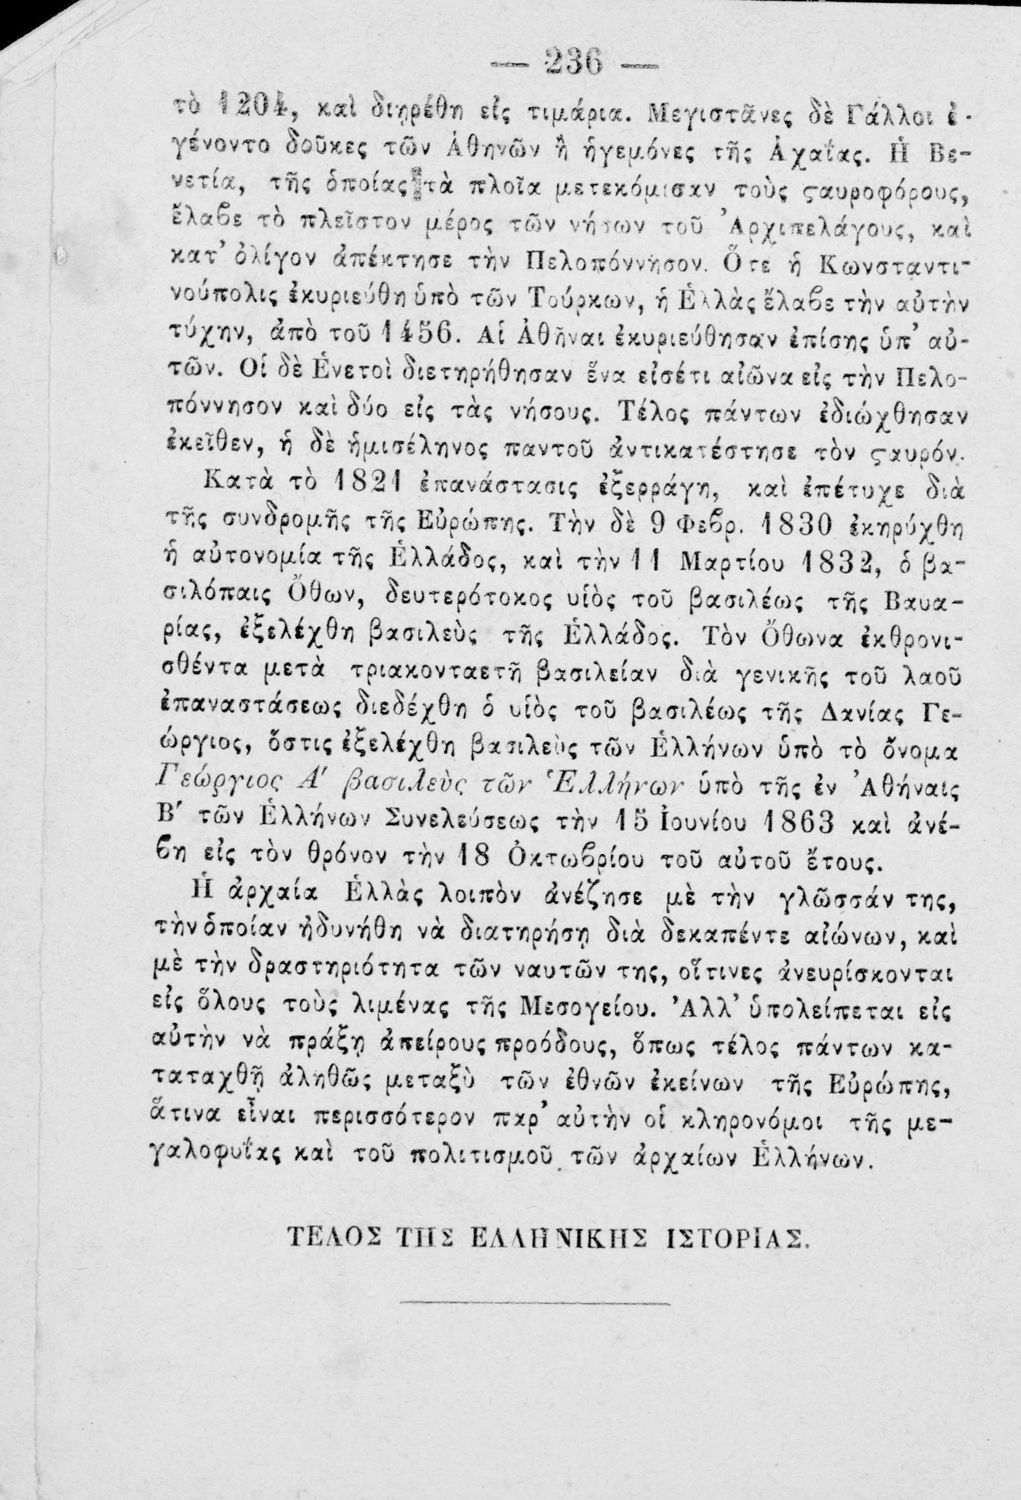 — 236 —
τὸ 1204, καὶ διῃρέθη εἰς τιμάρια. Μεγιστᾶνες δὲ Γάλλοι ἐ-
γένοντο δοῦκες τῶν Ἀθηνῶν ἢ ἡγεμόνες τῆς Ἀχαΐας. Ἡ Βε-
νετία, τῆς ὁποίας τὰ πλοῖα μετεκόμισαν τοὺς ϛαυροφόρους,
ἔλαϐε τὸ πλεῖστον μέρος τῶν νήσων τοῦ Ἀρχιπελάγους, καὶ
κατ’ ὀλίγον ἀπέκτησε τὴν Πελοπόννησον. Ὅτε ἡ Κωνσταντι-
νούπολις ἐκυριεύθη ὑπὸ τῶν Τούρκων, ἡ Ἑλλὰς ἔλαϐε τὴν αὐτὴν
τύχην, ἀπὸ τοῦ 1456. Αἱ Ἀθῆναι ἐκυριεύθησαν ἐπίσης ὑπ’ αὐ-
τῶν. Οἱ δὲ Ἑνετοὶ διετηρήθησαν ἕνα εἰσέτι αἰῶνα εἰς τὴν Πελο-
πόννησον καὶ δύο εἰς τὰς νήσους. Τέλος πάντων ἐδιώχθησαν
ἐκεῖθεν, ἡ δὲ ἡμισέληνος παντοῦ ἀντικατέστησε τὸν ϛαυρόν.
Κατὰ τὸ 1821 ἐπανάστασις ἐξερράγη, καὶ ἐπέτυχε διὰ
τῆς συνδρομῆς τῆς Εὐρώπης. Τὴν δὲ 9 Φεϐρ. 1830 ἐκηρύχθη
ἡ αὐτονομία τῆς Ἑλλάδος, καὶ τὴν 11 Μαρτίου 1832, ὁ βα-
σιλόπαις Ὄθων, δευτερότοκος υἱὸς τοῦ βασιλέως τῆς Βαυα-
ρίας, ἐξελέχθη βασιλεὺς τῆς Ἑλλάδος. Τὸν Ὄθωνα ἐκθρονι-
σθέντα μετὰ τριακονταετῆ βασιλείαν διὰ γενικῆς τοῦ λαοῦ
ἐπαναστάσεως διεδέχθη ὁ υἱὸς τοῦ βασιλέως τῆς Δανίας Γε-
ώργιος, ὅστις ἐξελέχθη βασιλεὺς τῶν Ἑλλήνων ὑπὸ τὸ ὄνομα
Γεώργιος Α′ βασιλεὺς τῶν Ἑλλήνων ὑπὸ τῆς ἐν Ἀθήναις
Β′ τῶν Ἑλλήνων Συνελεύσεως τὴν 15 Ἰουνίου 1863 καὶ ἀνέ-
ϐη εἰς τὸν θρόνον τὴν 18 Ὀκτωϐρίου τοῦ αὐτοῦ ἔτους.
Ἡ ἀρχαία Ἑλλὰς λοιπὸν ἀνέζησε μὲ τὴν γλῶσσάν της,
τὴν ὁποίαν ἠδυνήθη νὰ διατηρήσῃ διὰ δεκαπέντε αἰώνων, καὶ
μὲ τὴν δραστηριότητα τῶν ναυτῶν της, οἵτινες ἀνευρίσκονται
εἰς ὅλους τοὺς λιμένας τῆς Μεσογείου. Ἀλλ’ ὑπολείπεται εἰς
αὐτὴν νὰ πράξῃ ἀπείρους προόδους, ὅπως τέλος πάντων κα-
ταταχθῇ ἀληθῶς μεταξὺ τῶν ἐθνῶν ἐκείνων τῆς Εὐρώπης,
ἅτινα εἶναι περισσότερον παρ’ αὐτὴν οἱ κληρονόμοι τῆς με-
γαλοφυΐας καὶ τοῦ πολιτισμοῦ τῶν ἀρχαίων Ἑλλήνων.
ΤΕΛΟΣ ΤΗΣ ΕΛΛΗΝΙΚΗΣ ΙΣΤΟΡΙΑΣ.